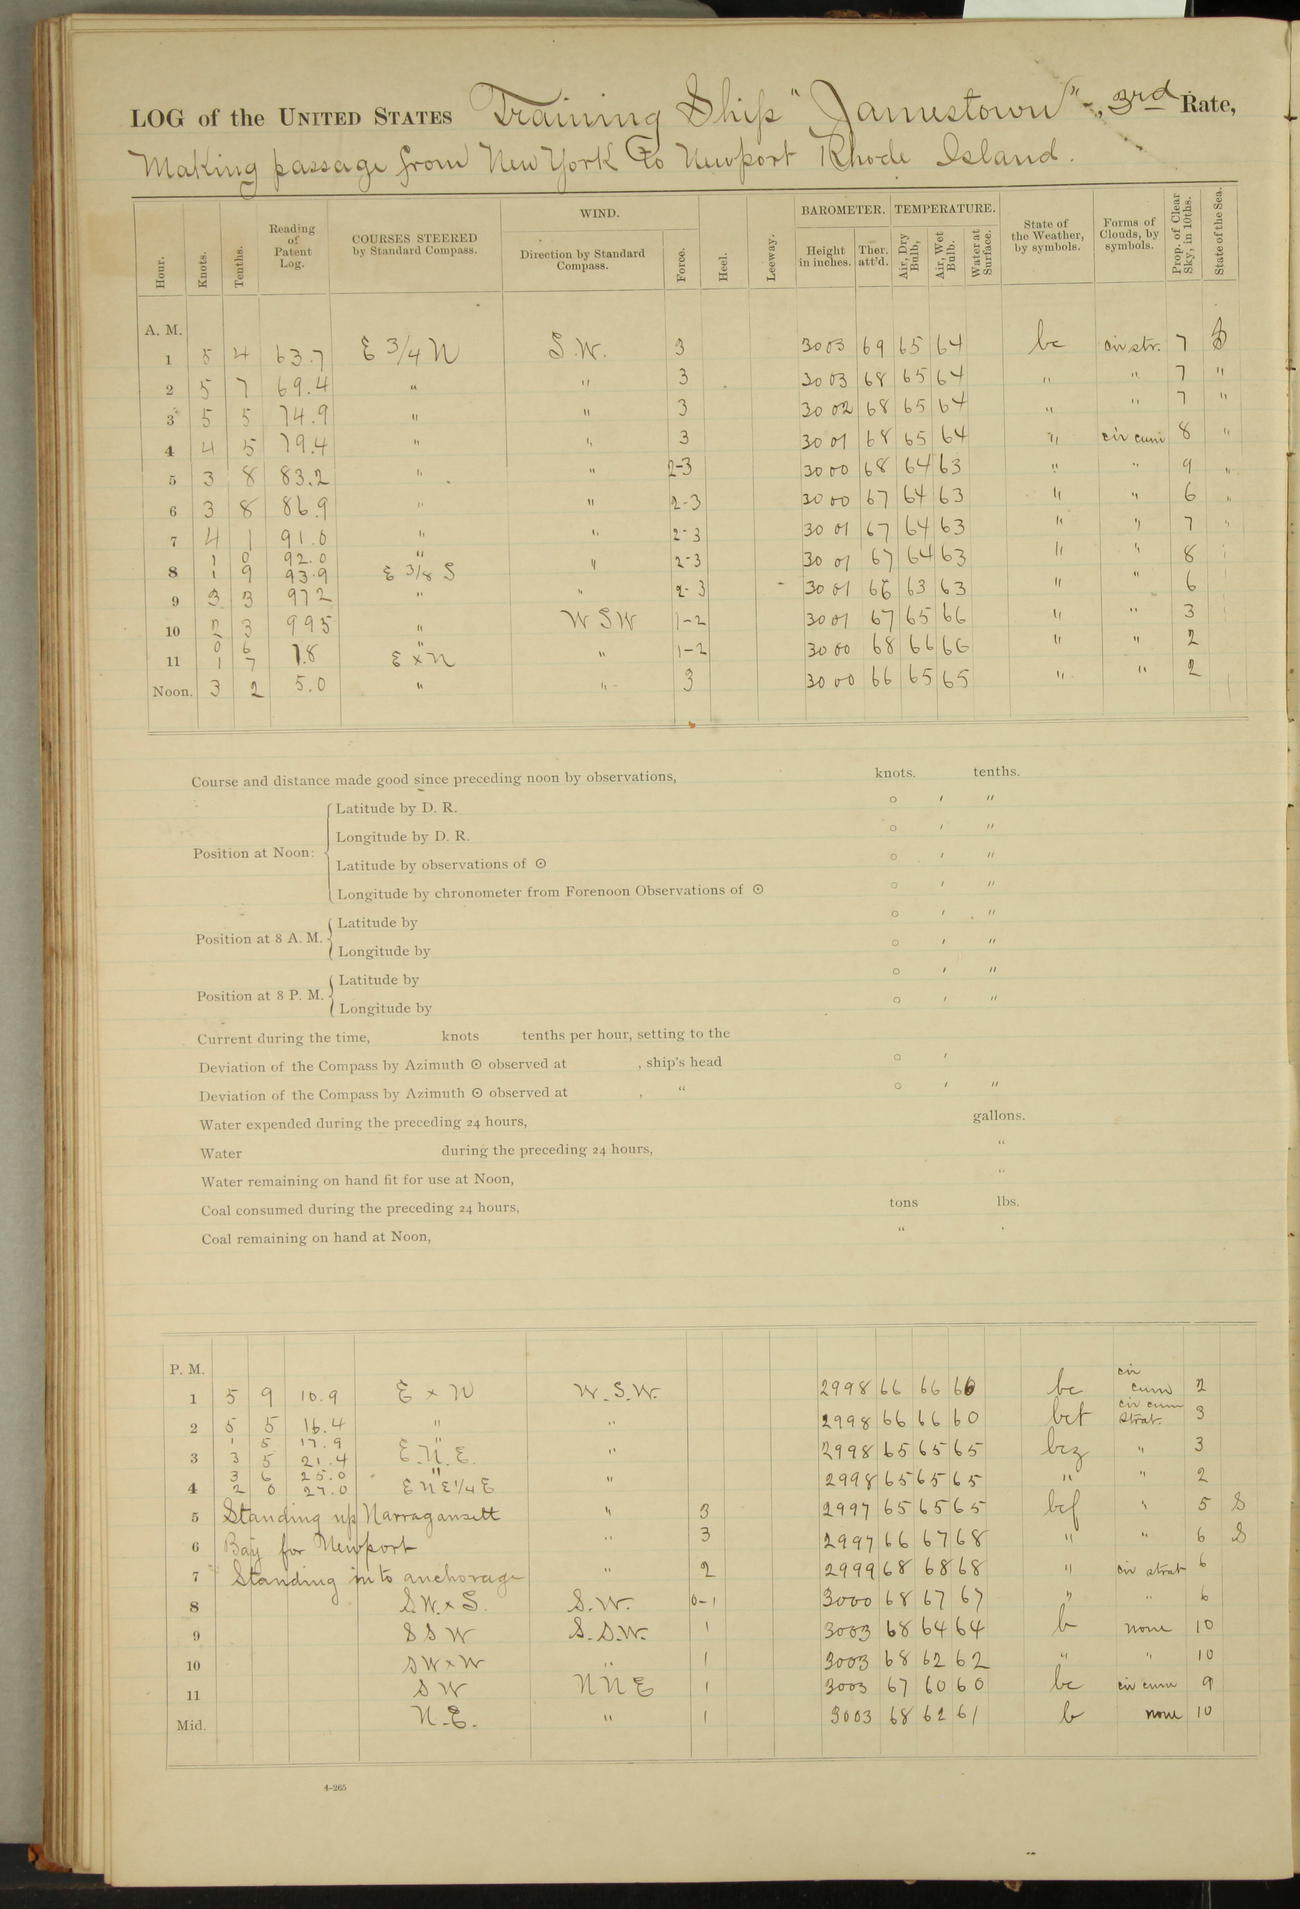 LOG of the UNITED STATES Training Ship "Jamestown", 3rd Rate,
Making passage from New York to Newport Rhode Island.
Hour. Knots. Tenths. Reading of Patent Log. COURSES STEERED by Standard Compass. WIND. Direction by Standard Compass. Force. Heel. Leeway. BAROMETER. Height in inches. Ther. att'd. TEMPERATURE. Air, Dry Bulb, Air, Wet Bulb. Water at Surface. State of the Weather, by symbols. Forms of Clouds, by symbols. Prop. of Clear Sky, in 10ths. State of the Sea.
A. M.
1 5 4 63.7 E 3/4 N S.W. 3 3003 69 65 64 bc cir str. 7 S
2 5 7 69.4 " " 3 3003 68 65 64 " " 7 "
3 5 5 74.9 " " 3 3002 68 65 64 " " 7 "
4 4 5 79.4 " " 3 3001 68 65 64 " cir cum 8 "
5 3 8 83.2 " " 2-3 3000 68 64 63 " " 9 "
6 3 8 86.9 " " 2-3 3000 67 64 63 " " 6 "
7 4 1 91.0 " " 2-3 3001 67 64 63 " " 7 "
1 0 92.0 "
8 1 9 93.9 E 3/8 S " 2-3 3001 67 64 63 " " 8
9 3 3 972 " " 2-3 3001 66 63 63 " " 6
10 2 3 995 " W S W 1-2 3001 67 65 66 " " 3
0 6 "
11 1 7 1.8 E x N " 1-2 3000 68 66 66 " " 2
Noon. 3 2 5.0 " " 3 3000 66 65 65 " " 2
Course and distance made good since preceding noon by observations, knots. tenths.
Position at Noon: Latitude by D. R. ° ′ ″
Longitude by D. R. ° ′ ″
Latitude by observations of ⊙ ° ′ ″
Longitude by chronometer from Forenoon Observations of ⊙ ° ′ ″
Position at 8 A. M. Latitude by ° ′ ″
Longitude by ° ′ ″
Position at 8 P. M. Latitude by ° ′ ″
Longitude by ° ′ ″
Current during the time, knots tenths per hour, setting to the
Deviation of the Compass by Azimuth ⊙ observed at , ship's head ° ′
Deviation of the Compass by Azimuth ⊙ observed at , " ° ′ ″
Water expended during the preceding 24 hours, gallons.
Water during the preceding 24 hours, "
Water remaining on hand fit for use at Noon, "
Coal consumed during the preceding 24 hours, tons lbs.
Coal remaining on hand at Noon, "
P. M.
1 5 9 10.9 E x N W.S.W. 2998 66 66 66 bc cir cum 2
2 5 5 16.4 " " 2998 66 66 60 bct cir cum strat. 3
1 5 17.9 "
3 3 5 21.4 E.N.E. " 2998 65 65 65 bcz " 3
3 6 25.0 "
4 2 0 27.0 E N E 1/4 E " 2998 65 65 65 " " 2
5 Standing up Narragansett " 3 2997 65 65 65 bcf " 5 S
6 Bay for Newport " 3 2997 66 67 68 " " 6 S
7 Standing in to anchorage " 2 2999 68 68 68 " cir strat 6
8 S.W. x S. S.W. 0-1 3000 68 67 67 " " 6
9 S S W S.S.W. 1 3003 68 64 64 b none 10
10 S W x W " 1 3003 68 62 62 " " 10
11 S W N N E 1 3003 67 60 60 bc cir cum 9
Mid. N.E. " 1 3003 68 62 61 b none 10
4-265